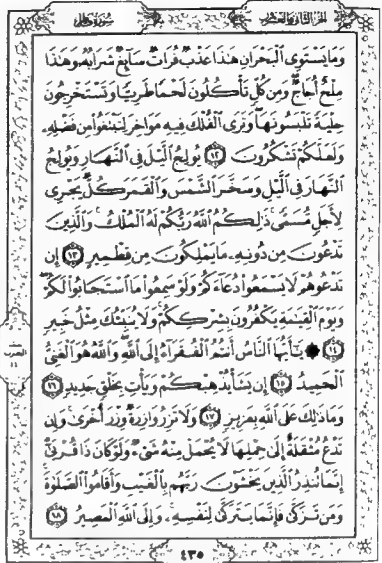 الجزء الثاني والعشرون
سورة فاطر
وَمَا يَسْتَوِى ٱلْبَحْرَانِ هَٰذَا عَذْبٌ فُرَاتٌ سَآئِغٌ شَرَابُهُۥ وَهَٰذَا
مِلْحٌ أُجَاجٌ ۖ وَمِن كُلٍّ تَأْكُلُونَ لَحْمًا طَرِيًّا وَتَسْتَخْرِجُونَ
حِلْيَةً تَلْبَسُونَهَا ۖ وَتَرَى ٱلْفُلْكَ فِيهِ مَوَاخِرَ لِتَبْتَغُوا۟ مِن فَضْلِهِۦ
وَلَعَلَّكُمْ تَشْكُرُونَ ١٢ يُولِجُ ٱلَّيْلَ فِى ٱلنَّهَارِ وَيُولِجُ
ٱلنَّهَارَ فِى ٱلَّيْلِ وَسَخَّرَ ٱلشَّمْسَ وَٱلْقَمَرَ كُلٌّ يَجْرِى
لِأَجَلٍ مُّسَمًّى ۚ ذَٰلِكُمُ ٱللَّهُ رَبُّكُمْ لَهُ ٱلْمُلْكُ ۚ وَٱلَّذِينَ
تَدْعُونَ مِن دُونِهِۦ مَا يَمْلِكُونَ مِن قِطْمِيرٍ ١٣ إِن
تَدْعُوهُمْ لَا يَسْمَعُوا۟ دُعَآءَكُمْ وَلَوْ سَمِعُوا۟ مَا ٱسْتَجَابُوا۟ لَكُمْ ۖ
وَيَوْمَ ٱلْقِيَٰمَةِ يَكْفُرُونَ بِشِرْكِكُمْ ۚ وَلَا يُنَبِّئُكَ مِثْلُ خَبِيرٍ
١٤ يَٰٓأَيُّهَا ٱلنَّاسُ أَنتُمُ ٱلْفُقَرَآءُ إِلَى ٱللَّهِ ۖ وَٱللَّهُ هُوَ ٱلْغَنِىُّ
ٱلْحَمِيدُ ١٥ إِن يَشَأْ يُذْهِبْكُمْ وَيَأْتِ بِخَلْقٍ جَدِيدٍ ١٦
وَمَا ذَٰلِكَ عَلَى ٱللَّهِ بِعَزِيزٍ ١٧ وَلَا تَزِرُ وَازِرَةٌ وِزْرَ أُخْرَىٰ ۚ وَإِن
تَدْعُ مُثْقَلَةٌ إِلَىٰ حِمْلِهَا لَا يُحْمَلْ مِنْهُ شَىْءٌ وَلَوْ كَانَ ذَا قُرْبَىٰٓ ۗ
إِنَّمَا تُنذِرُ ٱلَّذِينَ يَخْشَوْنَ رَبَّهُم بِٱلْغَيْبِ وَأَقَامُوا۟ ٱلصَّلَوٰةَ ۚ
وَمَن تَزَكَّىٰ فَإِنَّمَا يَتَزَكَّىٰ لِنَفْسِهِۦ ۚ وَإِلَى ٱللَّهِ ٱلْمَصِيرُ ١٨
الحزب
٤٤
٤٣٥